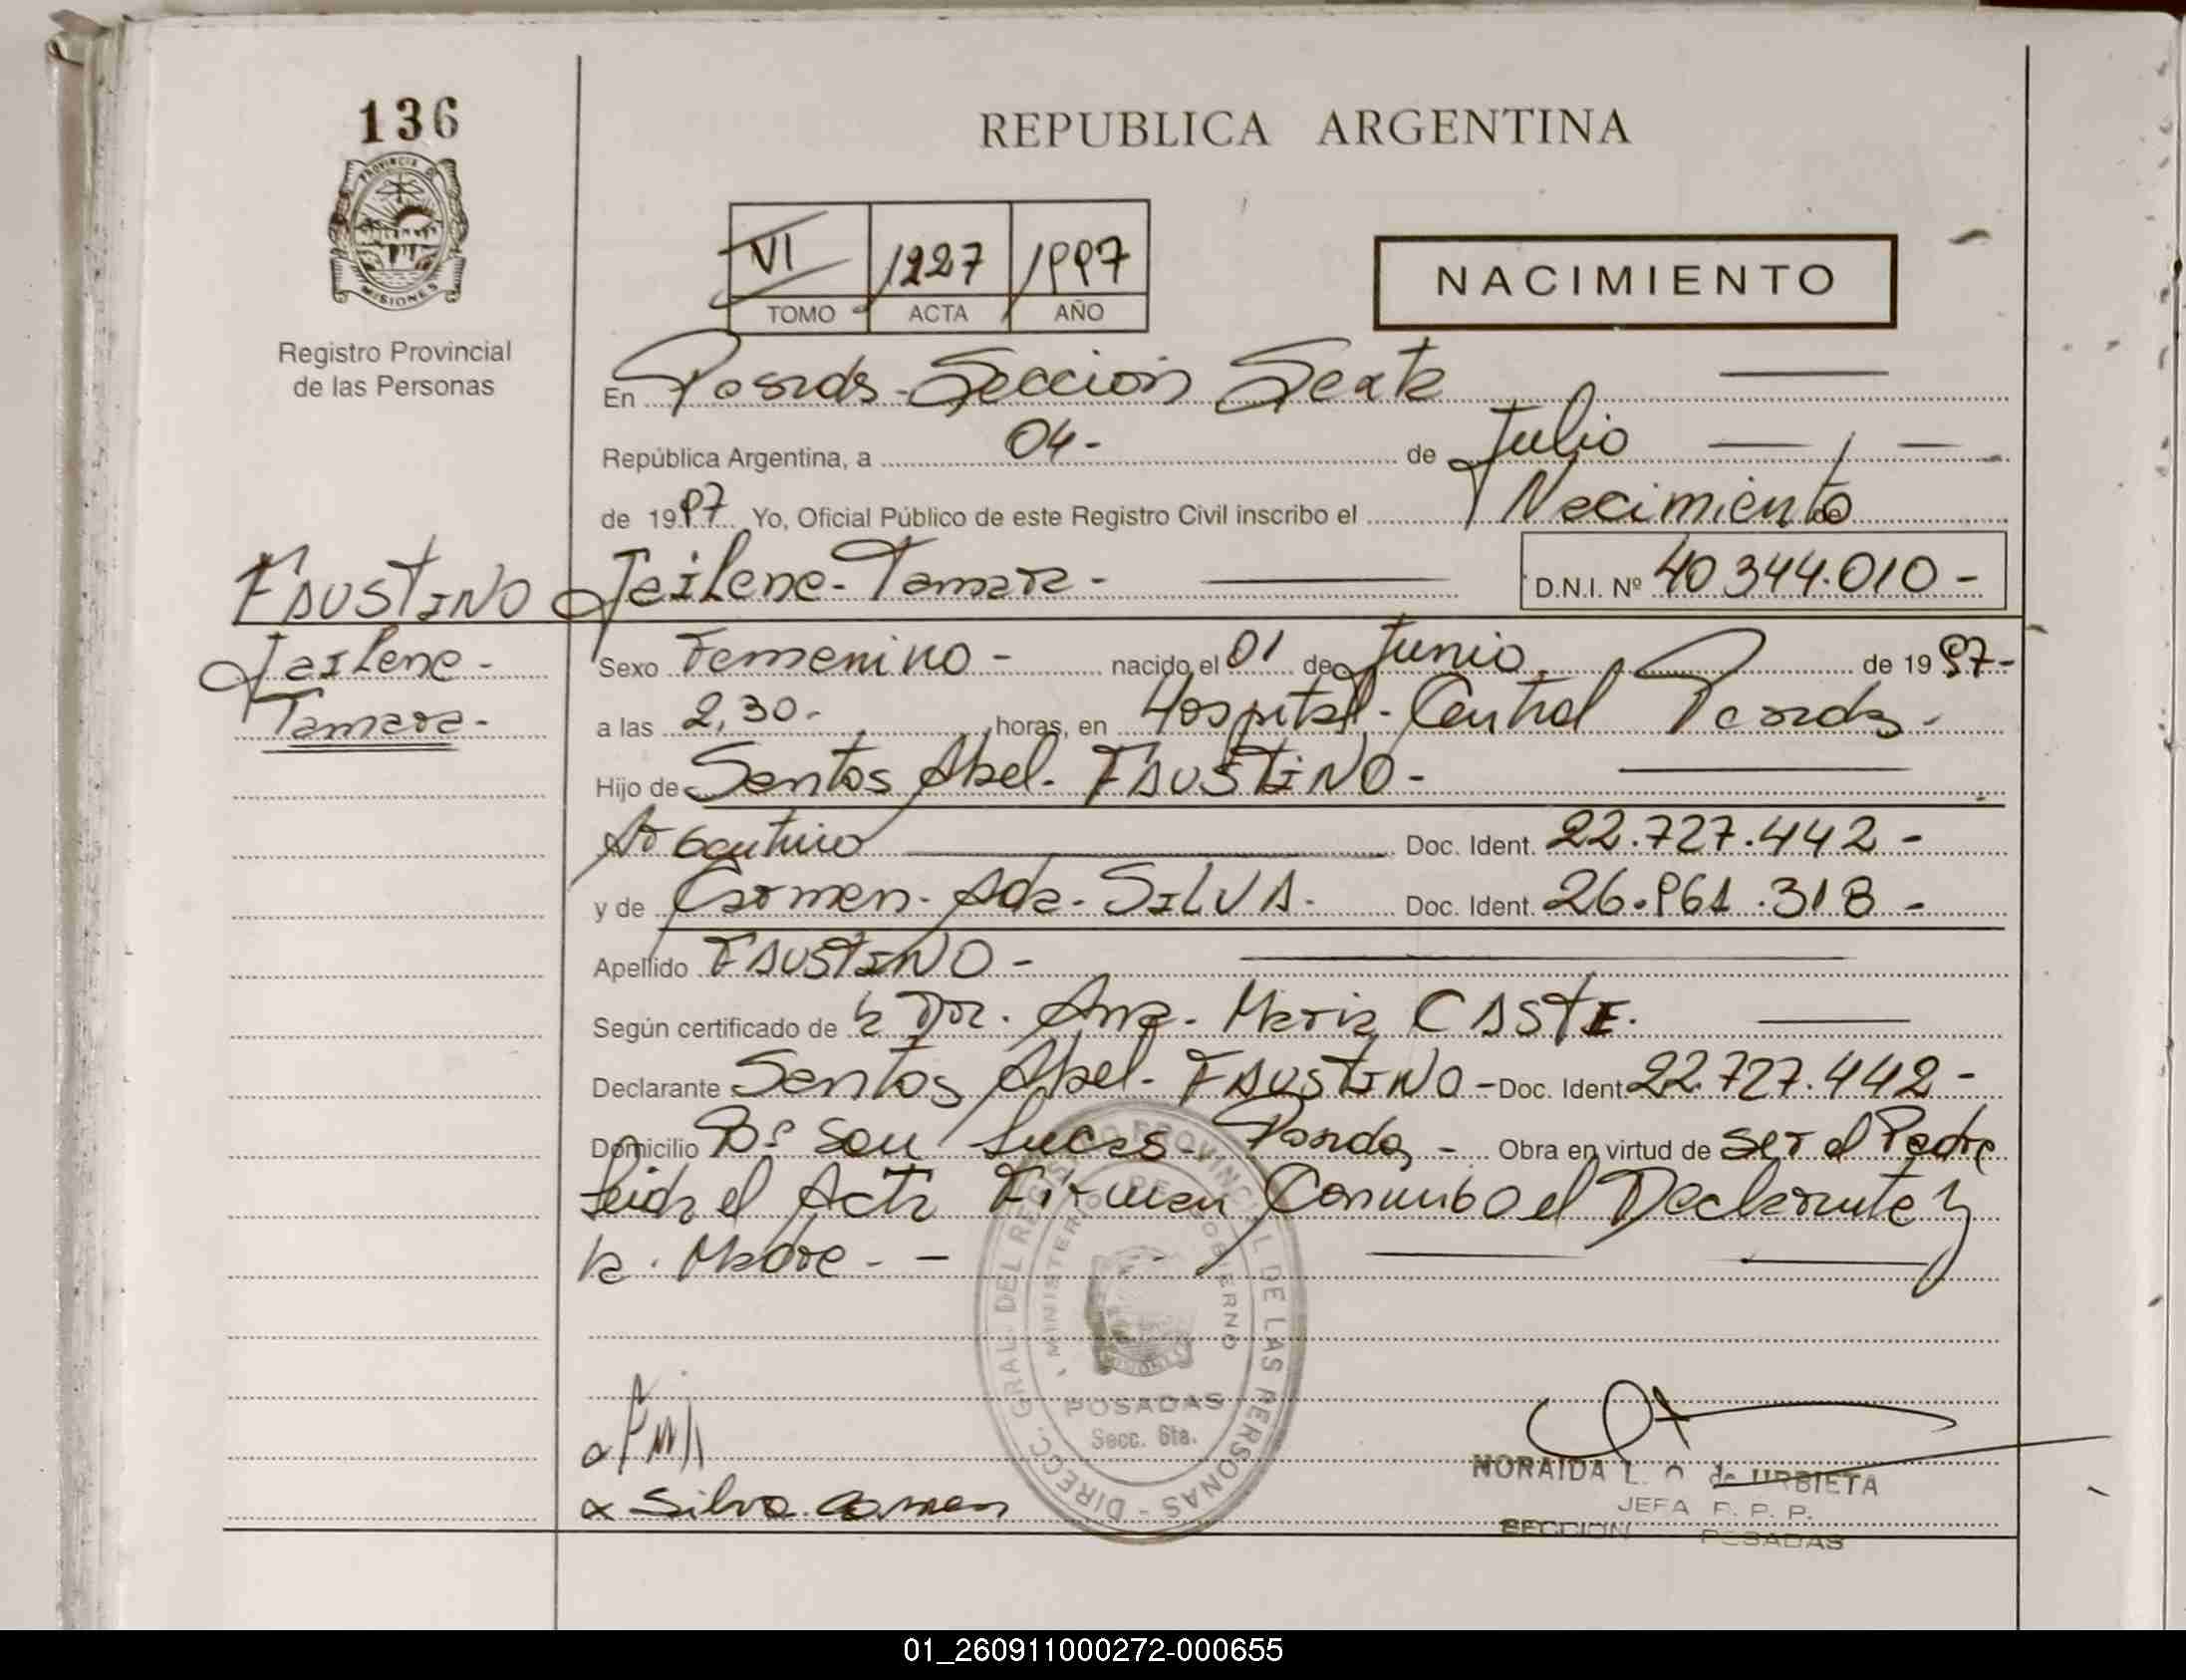 136
PROVINCIA DE
MISIONES
Registro Provincial
de las Personas
REPUBLICA ARGENTINA
VI 1227 1997
TOMO ACTA AÑO
NACIMIENTO
En Posadas - Sección Sexta
República Argentina, a 04- de Julio
de 1997 Yo, Oficial Público de este Registro Civil inscribo el Nacimiento
de
FAUSTINO Jailene - Tamara - D.N.I. Nº 40344.010 -
Jailene -
Tamara -
Sexo Femenino - nacido el 01 de Junio de 1997-
a las 2,30- horas, en Hospital - Central Posadas -
Hijo de Santos Abel - FAUSTINO -
Argentino Doc. Ident. 22.727.442 -
y de Carmen - Ada - SILVA - Doc. Ident. 26.961.318 -
Apellido FAUSTINO -
Según certificado de la Dra. Ana - Maria CASTE.
Declarante Santos Abel - FAUSTINO - Doc. Ident 22.727.442 -
Domicilio Bº San Lucas - Posadas - Obra en virtud de ser el Padre
Leida el Acta Firman Conmigo el Declarante y
la Madre - -
DIRECC. GRAL. DEL REGISTRO PROVINCIAL DE LAS PERSONAS -
MINISTERIO DE GOBIERNO
POSADAS
Secc. 6ta.
x Silva Carmen
NORAIDA L. de URBIETA
JEFA R. P. P.
SECCION POSADAS
01_260911000272-000655